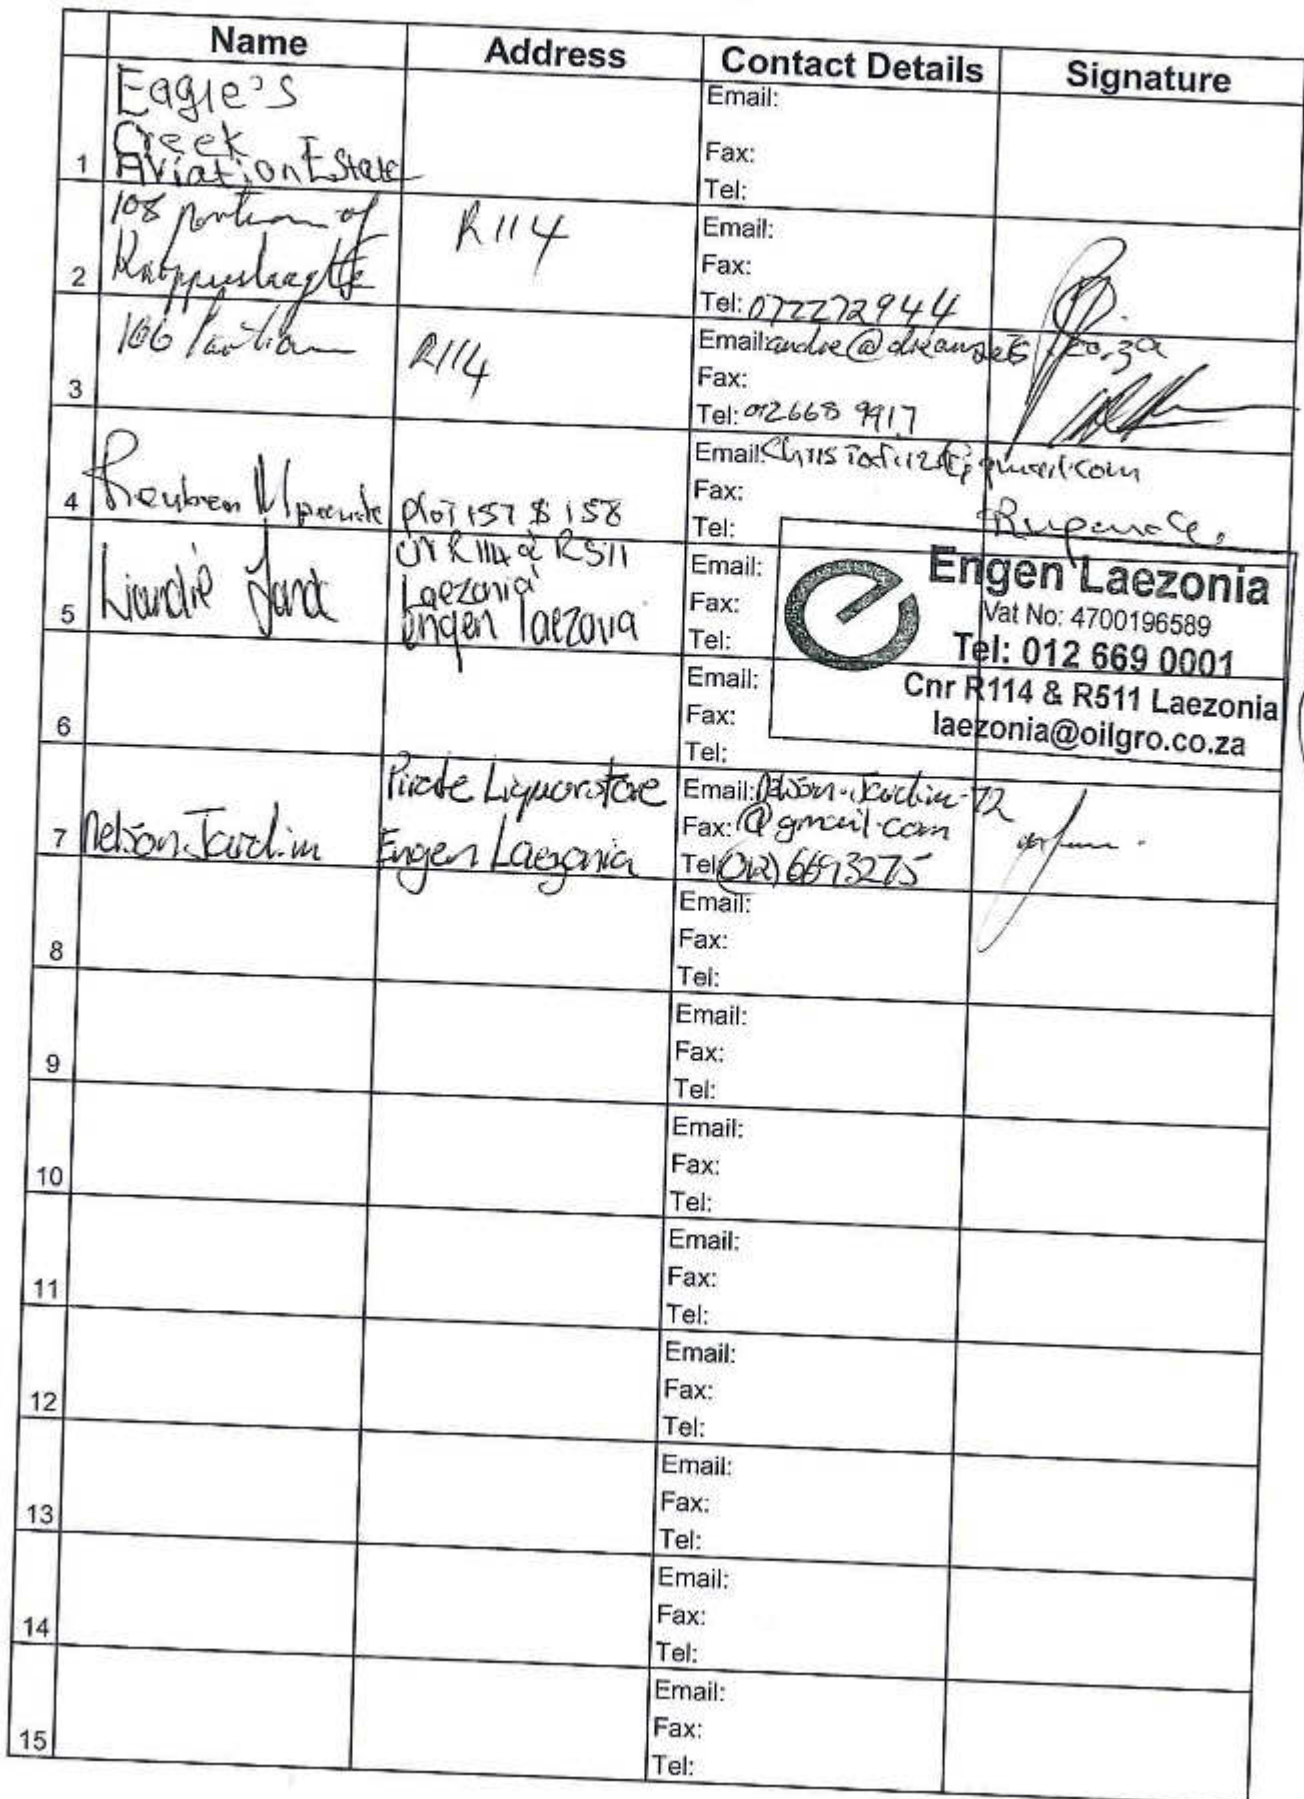 Name Address Contact Details Signature
Eagle's
Creek
Aviation Estate
1
Email:
Fax:
Tel:
108 portion of
2
R114
Email:
Fax:
Tel: 072272944
106 Portion
3
R114
Email: andre@dreamsets .co.za
Fax:
Tel: 012668 9917
4
Reuben
plot 157 & 158
Email:
Fax:
Tel:
5
Liandie
cnr R114 & R511
Laezonia
engen laezonia
Email:
Fax:
Tel:
Engen Laezonia
Vat No: 4700196589
Tel: 012 669 0001
Cnr R114 & R511 Laezonia
laezonia@oilgro.co.za
6
Email:
Fax:
Tel:
7 Nelson Jardim
Pirate Liquorstore
Engen Laezonia
Email: nelson.jardim.72
Fax: @gmail.com
Tel: (012) 6693275
8
Email:
Fax:
Tel:
9
Email:
Fax:
Tel:
10
Email:
Fax:
Tel:
11
Email:
Fax:
Tel:
12
Email:
Fax:
Tel:
13
Email:
Fax:
Tel:
14
Email:
Fax:
Tel:
15
Email:
Fax:
Tel: